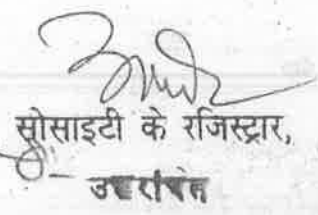 सोसाइटी के रजिस्ट्रार,
उत्तरांचल